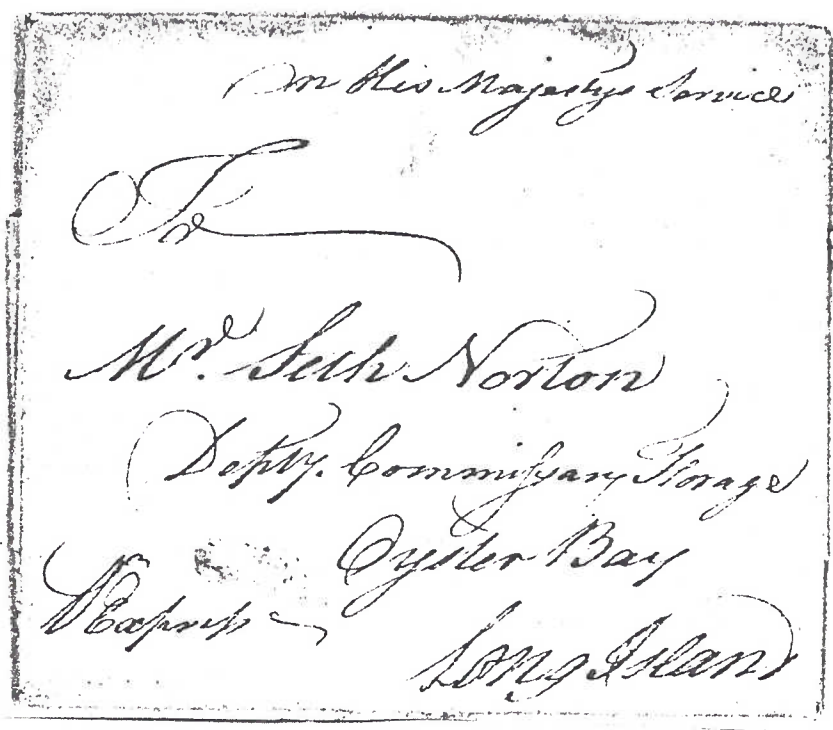 On His Majestys Service
To
Mr. Seth Norton
Depty. Commissary Forage
Oyster Bay
₱ Express
Long Island